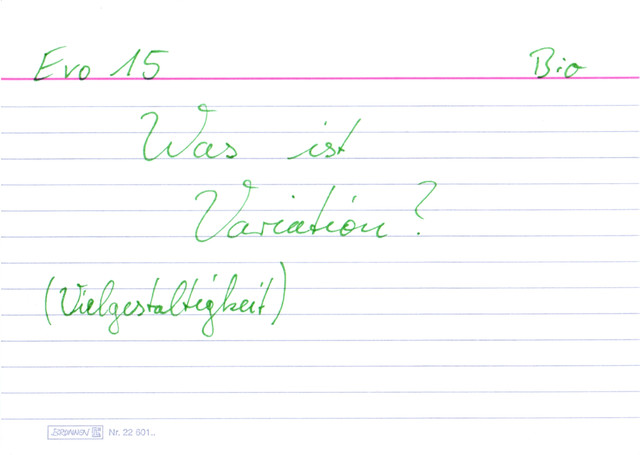 Evo 15 Bio
Was ist
Variation?
(Vielgestaltigkeit)
BRUNNEN Nr. 22 601..